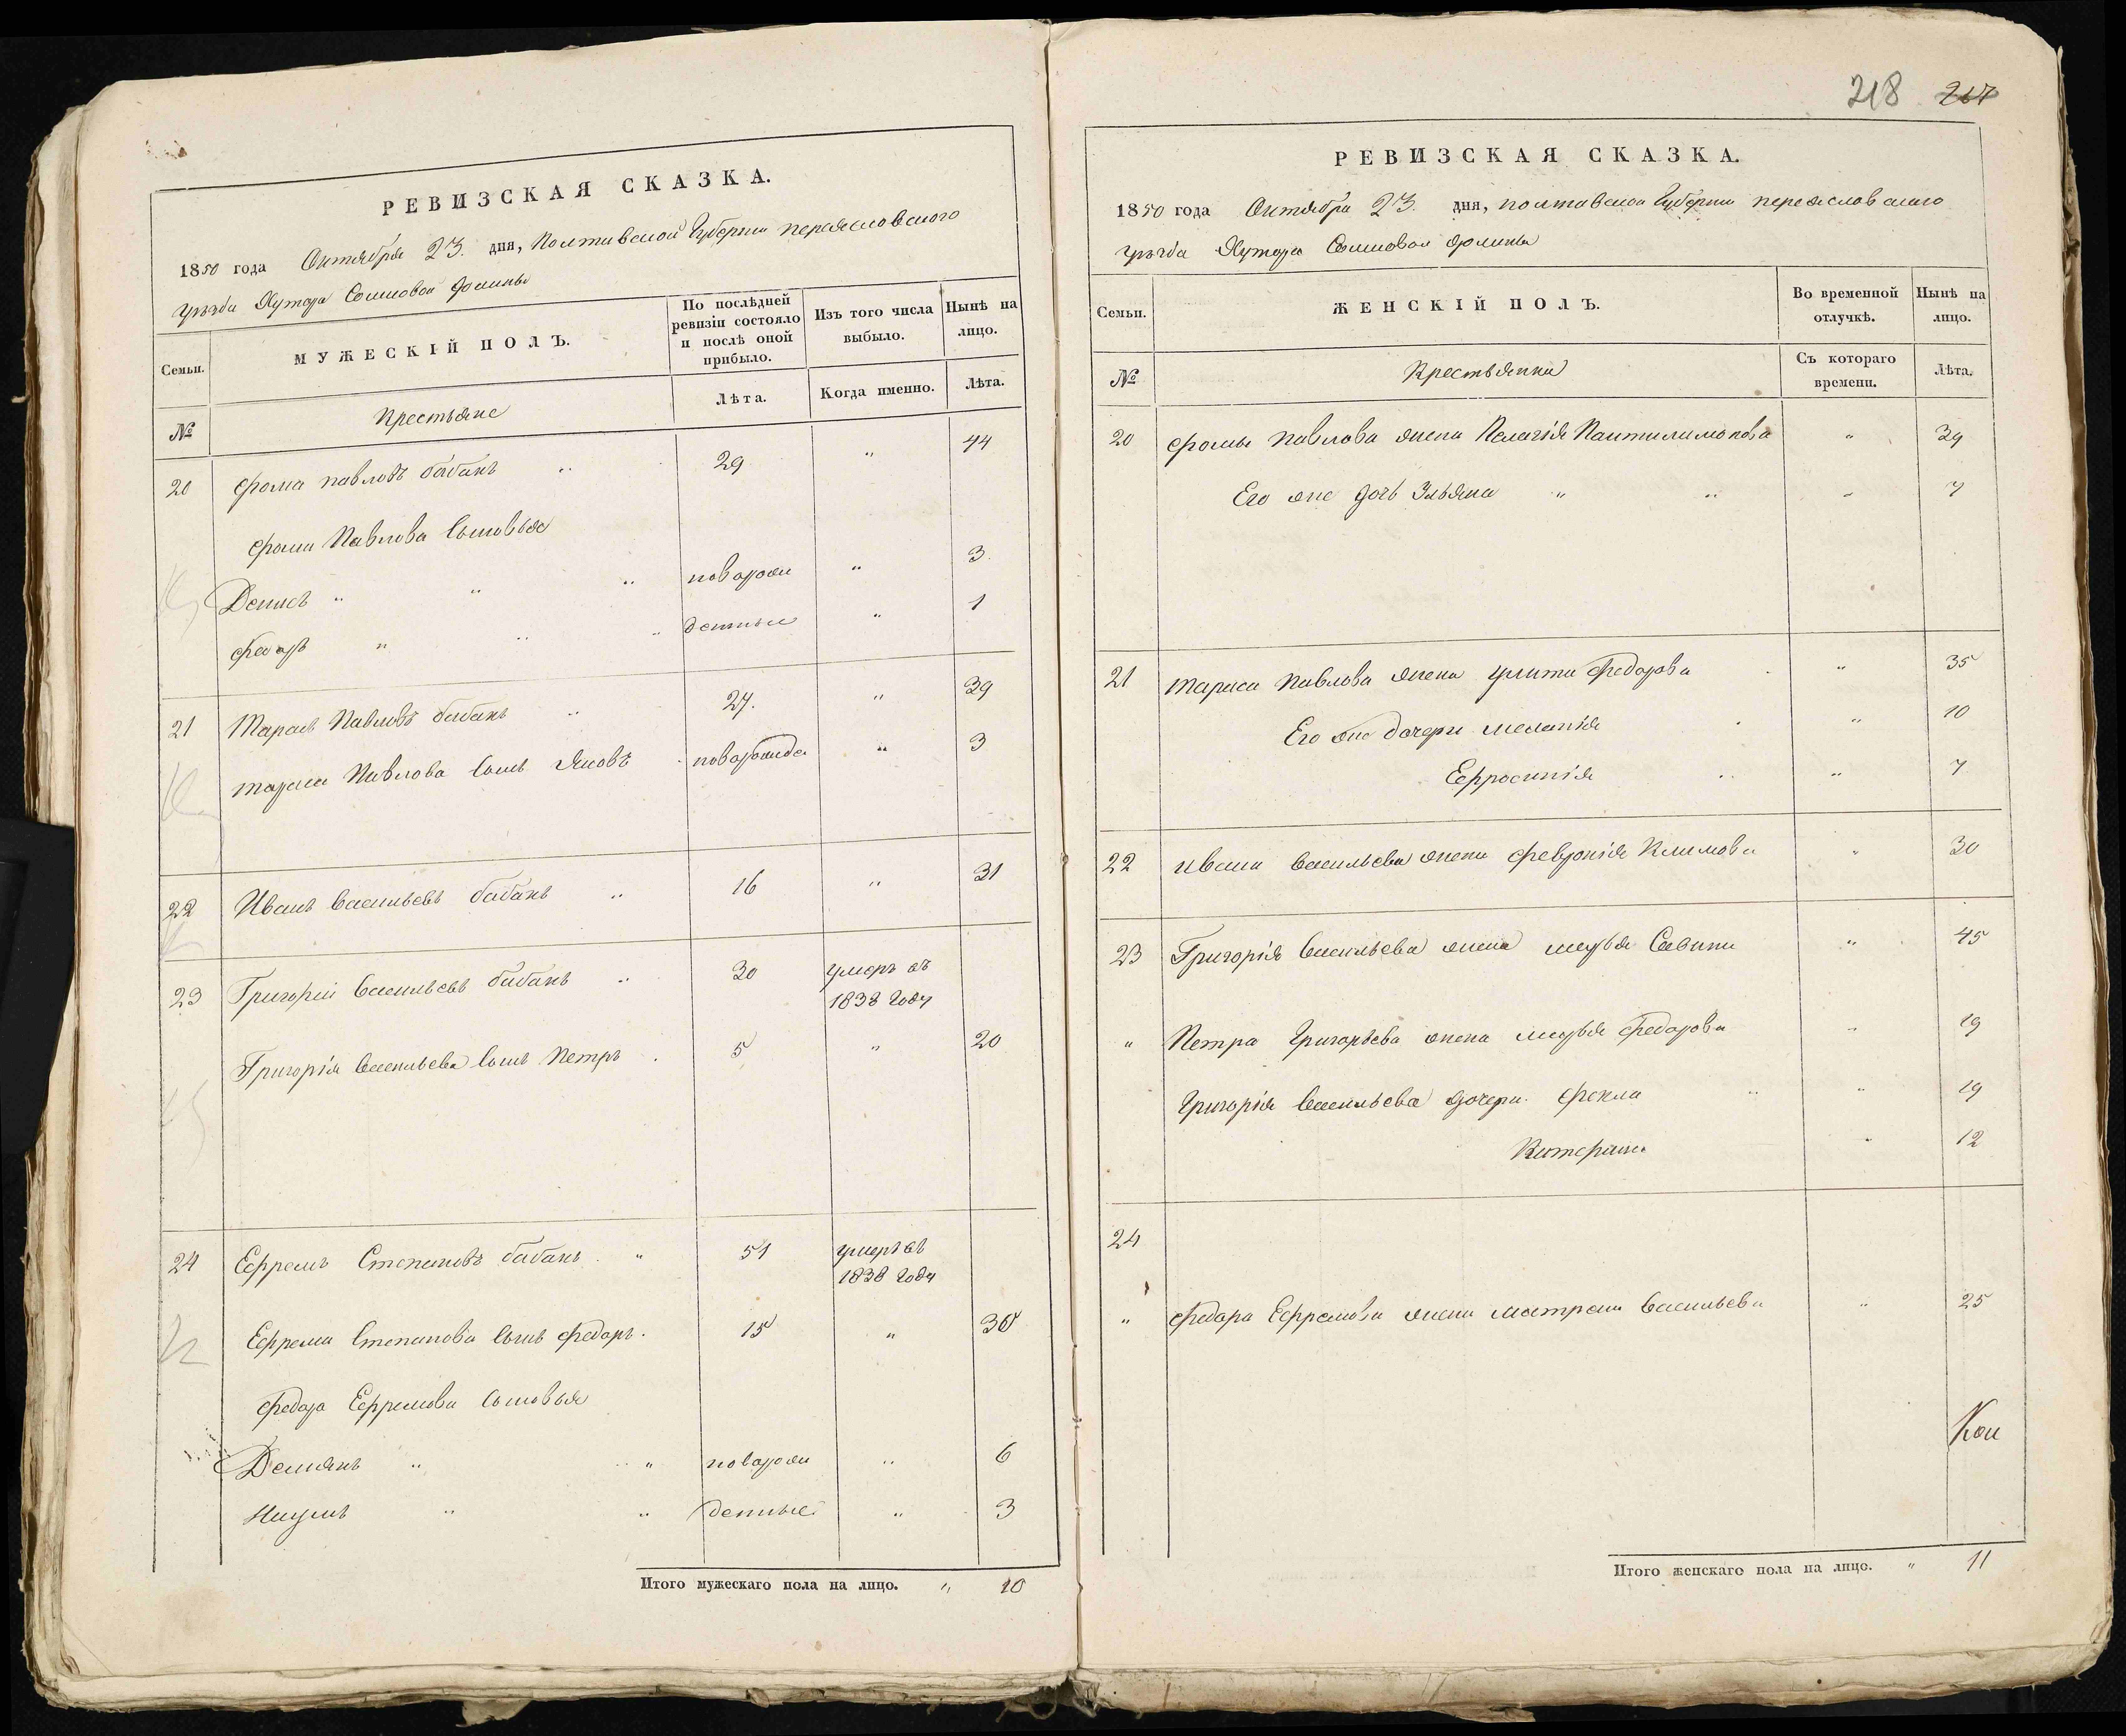 РЕВИЗСКАЯ СКАЗКА.
1850 года Октября 23. дня, Полтавской Губернии переясловского
уезда Хутора Сомковой долины
Семьи.
МУЖЕСКІЙ ПОЛЪ.
По послѣдней ревизіи состояло и послѣ оной прибыло.
Изъ того числа выбыло.
Нынѣ на лицо.
№
Крестьяне
Лѣта.
Когда именно.
Лѣта.
20 Фома павловъ бабакъ " 29 " 44
Фомы Павлова Сыновья
Денисъ " " " новорож " 3
Федоръ " " " денные " 1
21 Тарасъ Павловъ бабакъ " 27. " 39
тараса Павлова Сынъ Яковъ новорожде " 3
22 Иванъ Васильевъ бабакъ " 16 " 31
23 Григорій Васильевъ бабакъ " 30 умеръ въ
1838 году
Григорія Васильева Сынъ Петръ 5 " 20
24 Ефремъ Степановъ бабакъ " 51 умеръ въ
1838 году
Ефрема Степанова Сынъ Федоръ. 15 " 30
Федора Ефремова Сыновья
Демянъ " " новорож " 6
Наумъ " " денные " 3
Итого мужескаго пола на лицо. " 10
218 217
РЕВИЗСКАЯ СКАЗКА.
1850 года Октября 23. дня, полтавской Губернии переясловского
уезда Хутора Сомковой долины
Семьи.
ЖЕНСКІЙ ПОЛЪ.
Во временной отлучкѣ.
Нынѣ на лицо.
№
Крестьянки
Съ котораго времени.
Лѣта.
20 Фомы павлова жена Пелагія Пантилимонова " 39
Его же дочь Ульяна " " " 7
21 тараса Павлова жена улита Федорова " 35
Его же дочери меланія " 10
Ефросинія " " 7
22 ивана Васильева жена Февронія Климова " 30
23 Григорія Васильева жена марья Савина " 45
" Петра Григорьева жена марья Федорова " 19
Григорія Васильева дочери Фекла " " 19
Катерина " 12
24
" Федора Ефремова жена матрена Васильева " 25
Кои
Итого женскаго пола на лицо. " 11